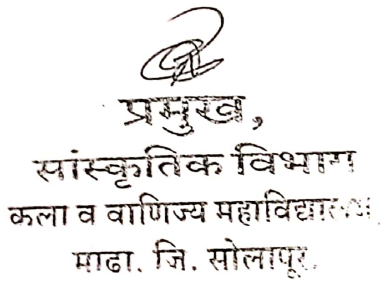 प्रमुख,
सांस्कृतिक विभाग
कला व वाणिज्य महाविद्यालय
माढा. जि. सोलापूर.